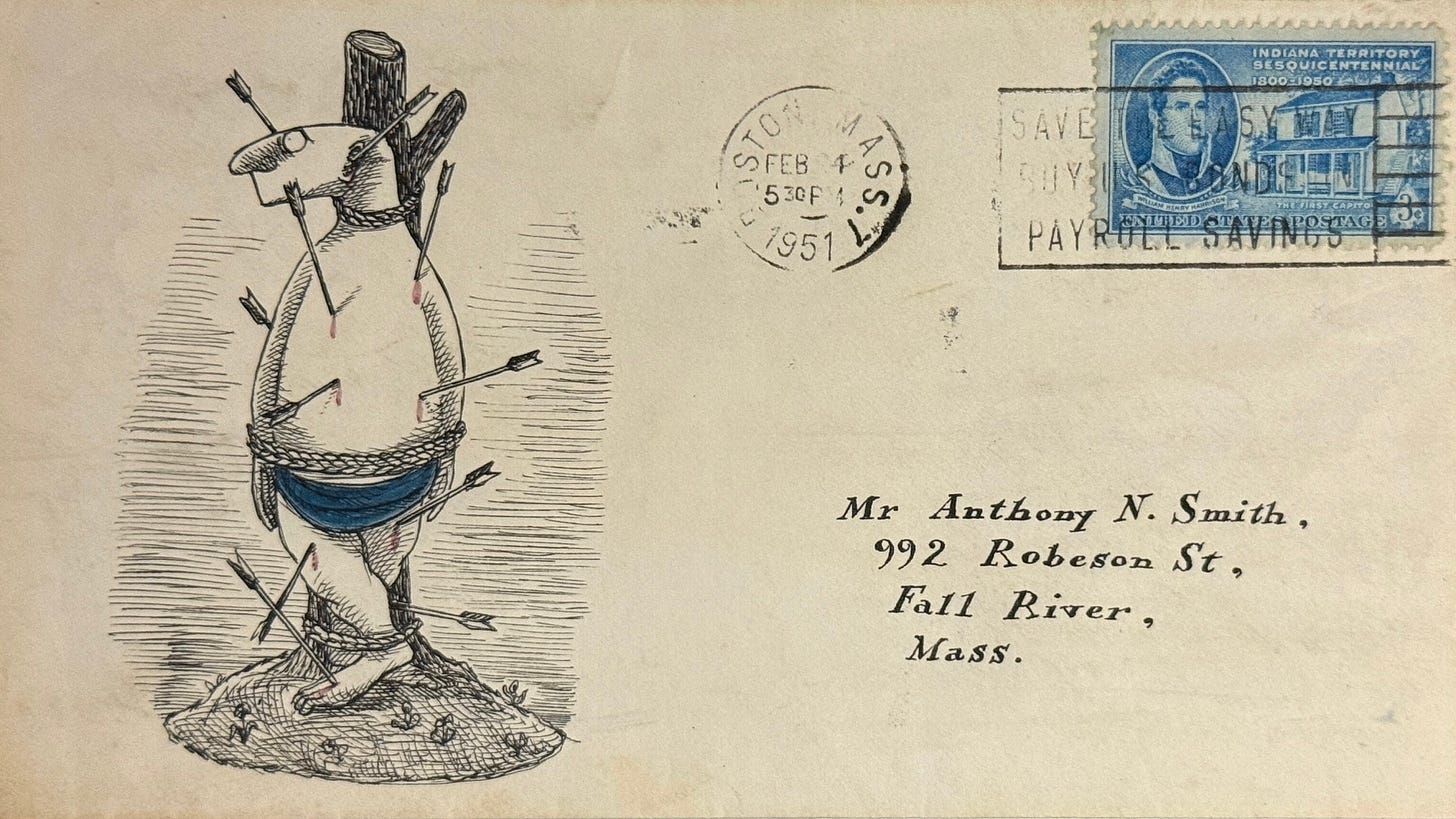 BOSTON, MASS. 7
FEB 4
5 30 PM
1951
SAVE THE EASY WAY
BUY U.S. BONDS IN
PAYROLL SAVINGS
INDIANA TERRITORY
SESQUICENTENNIAL
1800-1950
WILLIAM HENRY HARRISON
THE FIRST CAPITOL
UNITED STATES POSTAGE 3¢
Mr Anthony N. Smith,
992 Robeson St,
Fall River,
Mass.